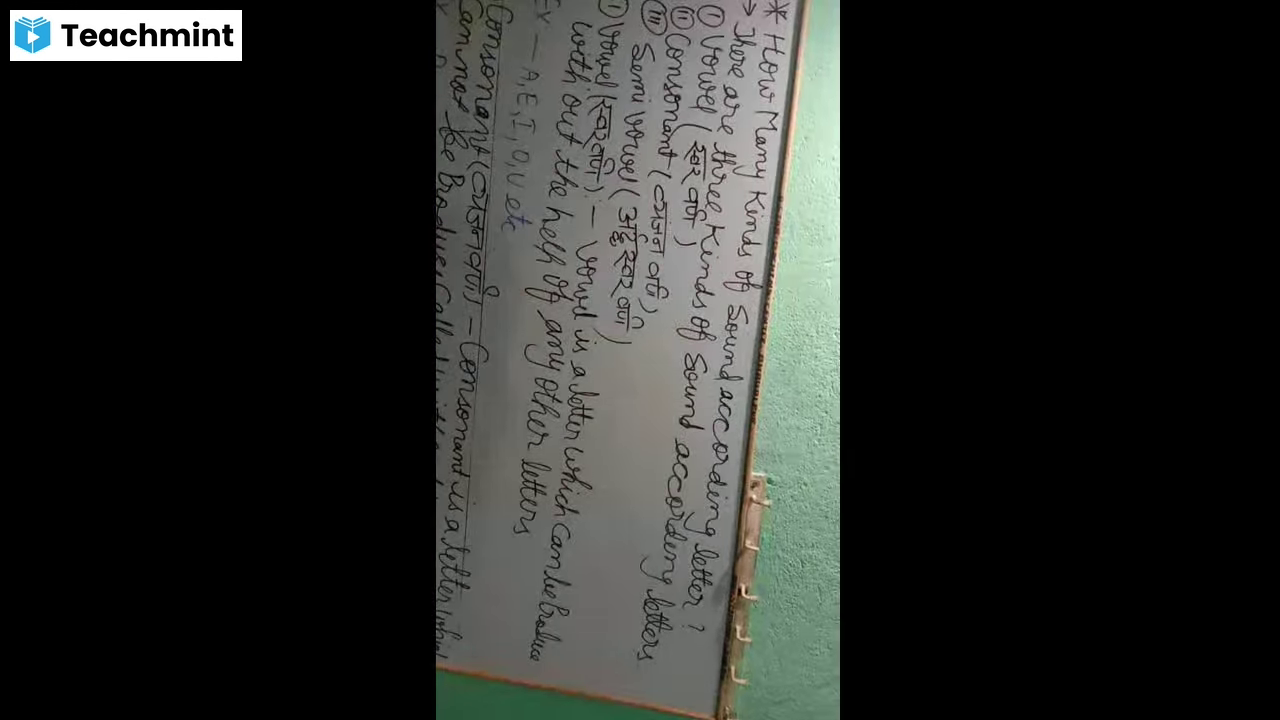 Teachmint
* How Many Kinds of Sound according letter?
→ There are three Kinds of Sound according letters
(i) Vowel (स्वर वर्ण)
(ii) Consonant (व्यंजन वर्ण)
(iii) Semi Vowel (अर्द्ध स्वर वर्ण)
(i) Vowel (स्वर वर्ण) :- Vowel is a letter which can be Produce
with out the help of any other letters
Ex - A, E, I, O, U etc
Consonant (व्यंजन वर्ण) - Consonant is a letter
Can not be